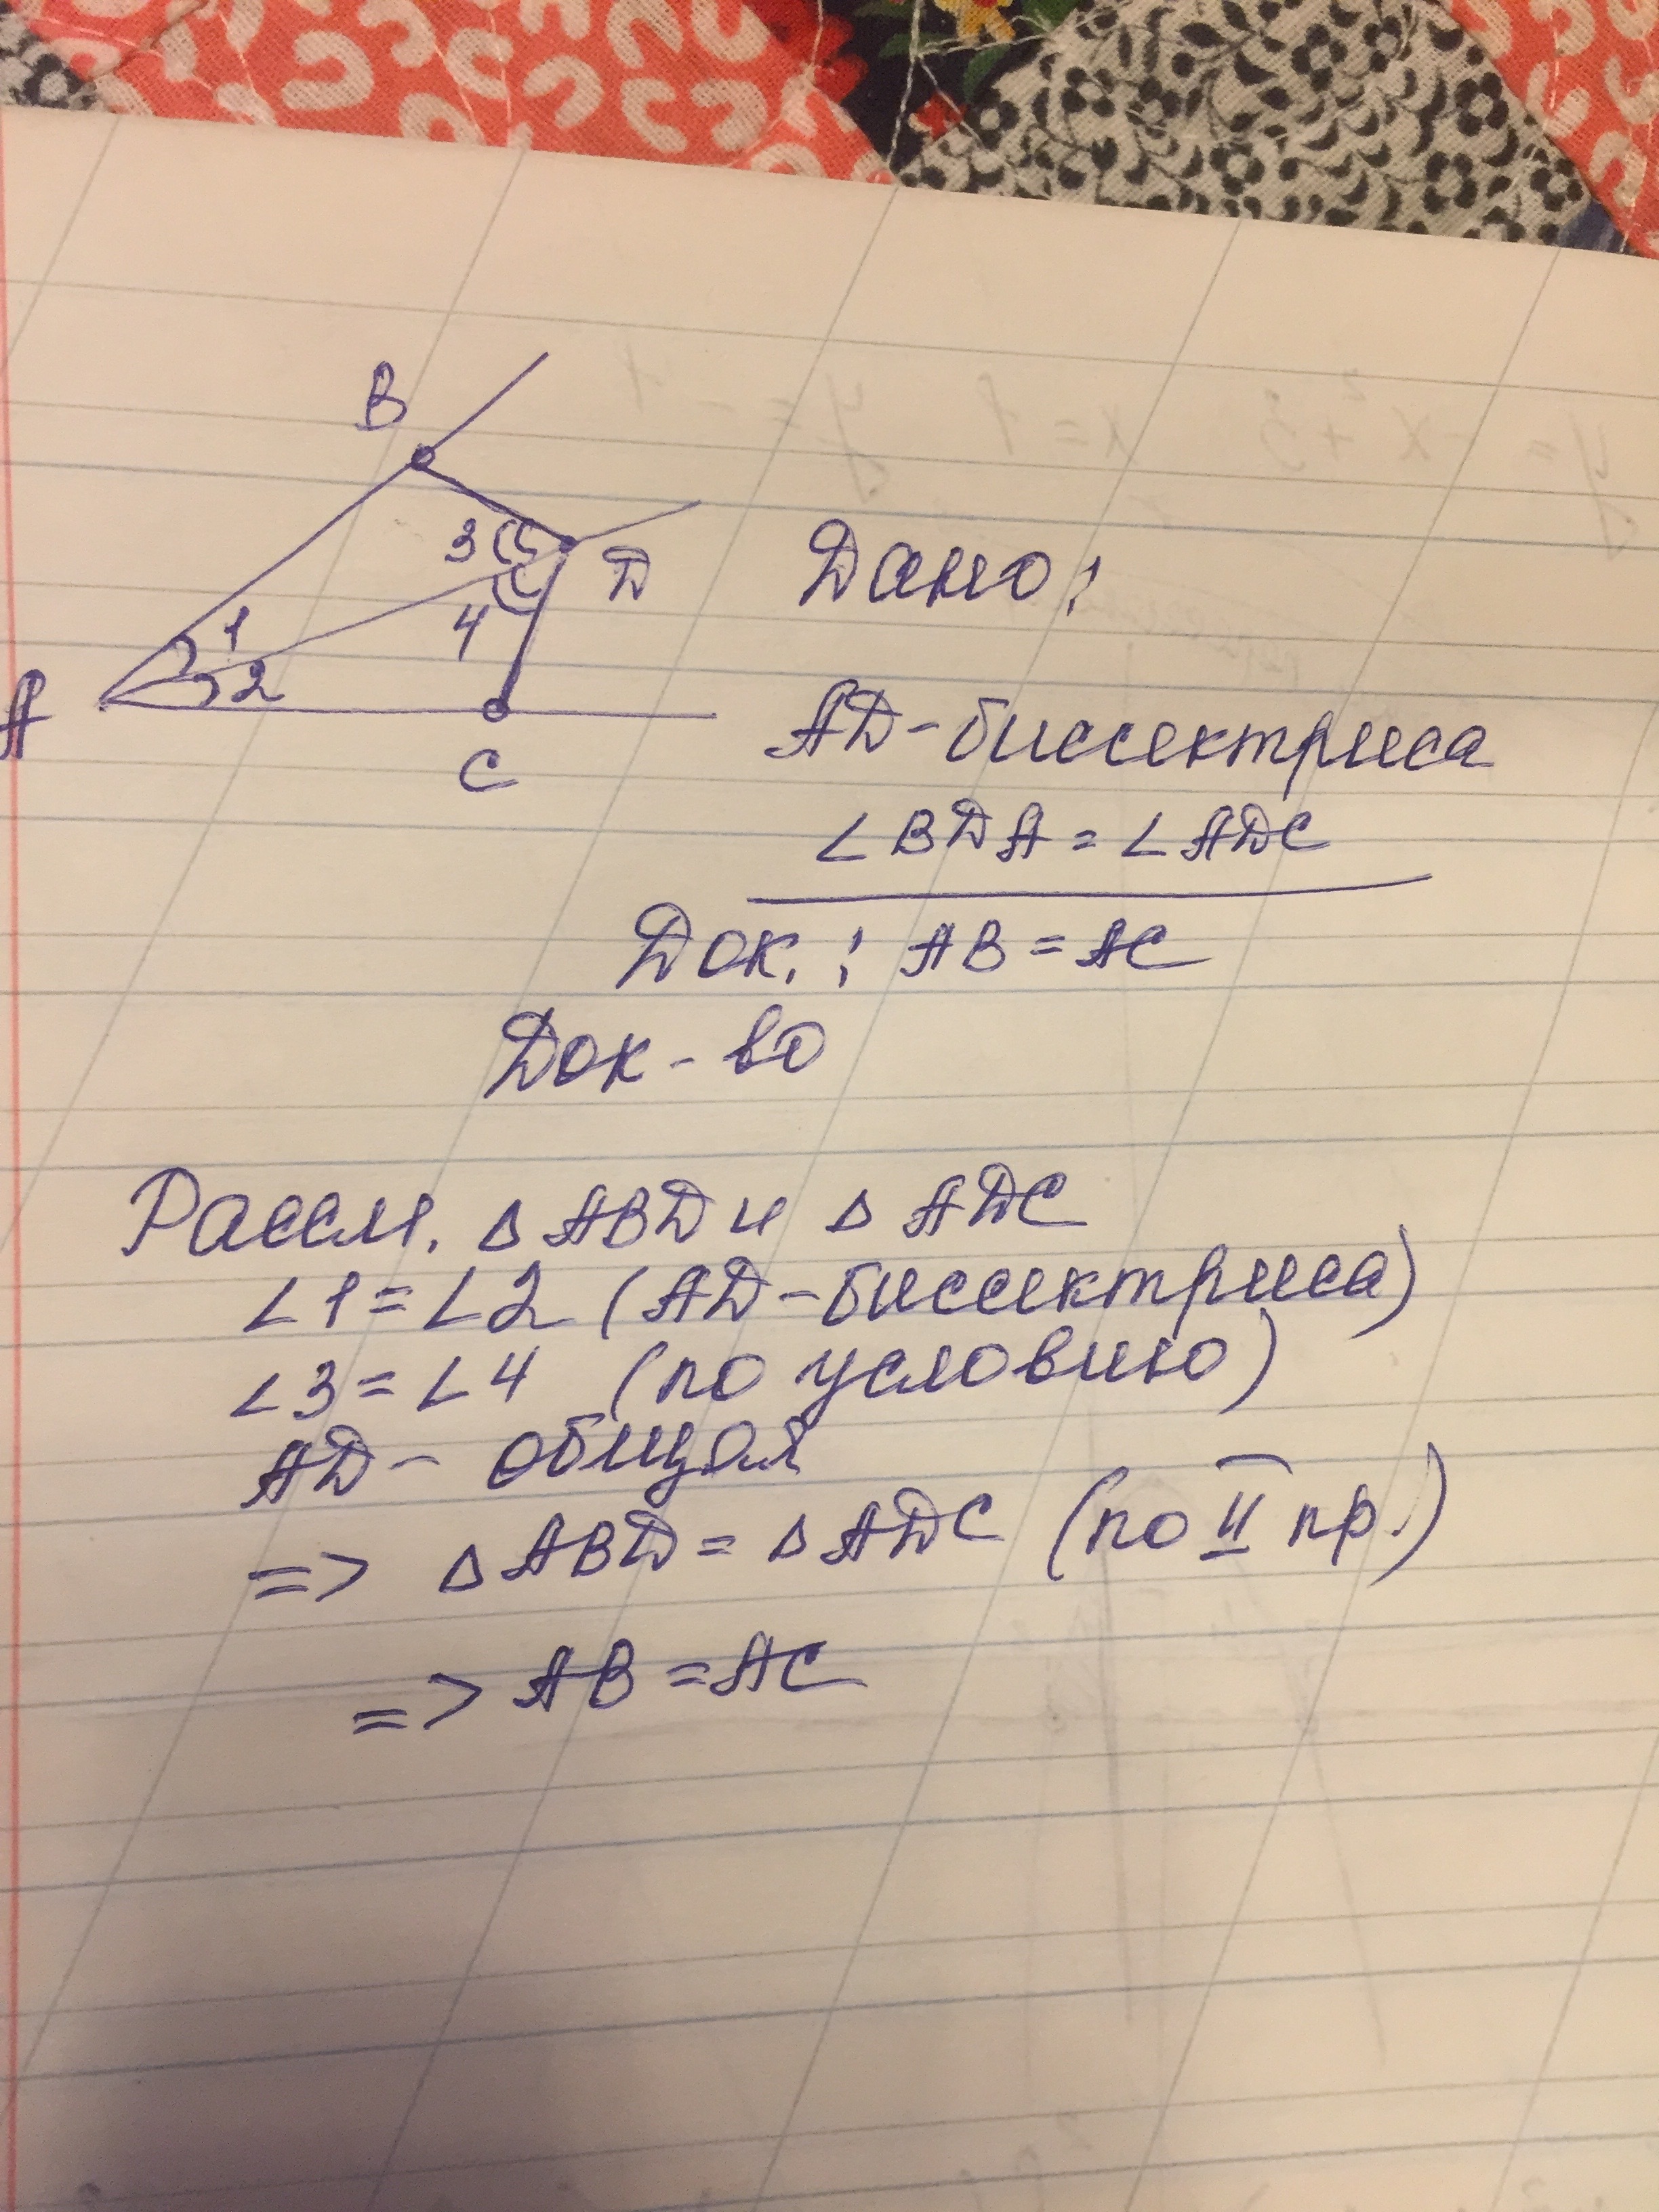 B
3
D
4
1
2
A
C
Дано:
AD - биссектриса
∠BDA = ∠ADC
Док.: AB = AC
Док-во
Рассм. △ABD и △ADC
∠1 = ∠2 (AD - биссектриса)
∠3 = ∠4 (по условию)
AD - общая
=> △ABD = △ADC (по II пр.)
=> AB = AC